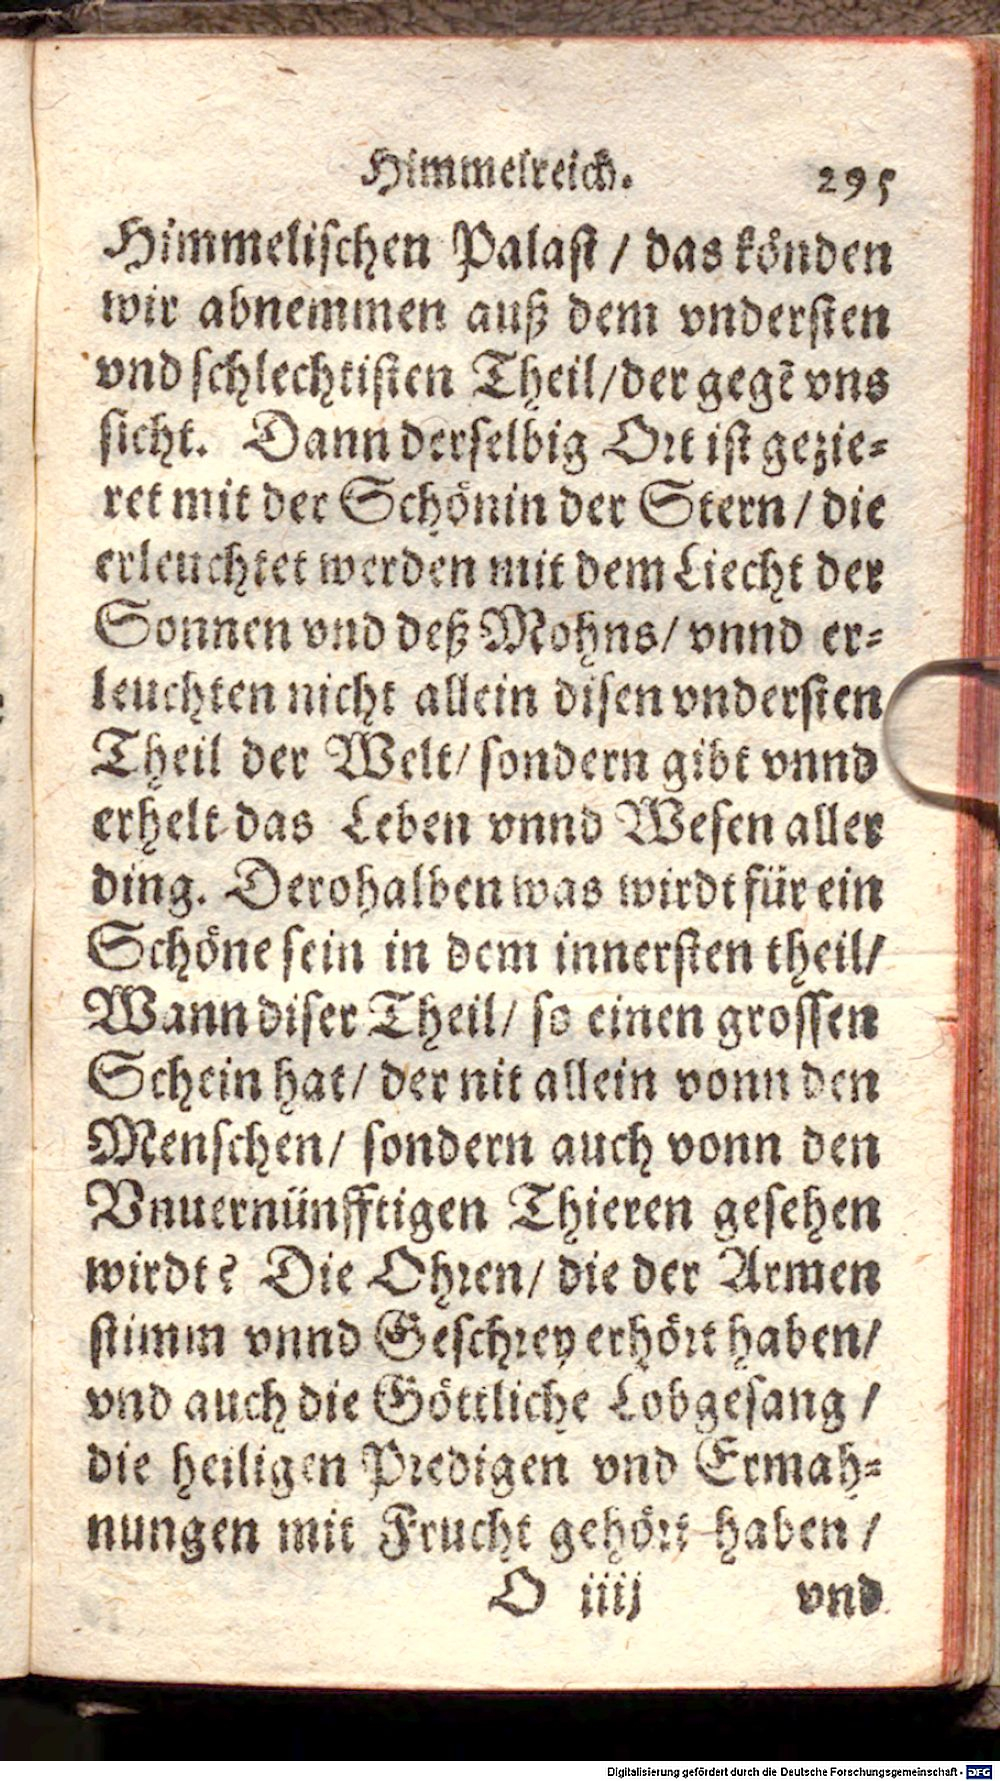 Himmelreich. 295
Himmelischen Palast / das könden
wir abnemmen auß dem vndersten
vnd schlechtisten Theil/der gegē vns
sicht. Dann derselbig Ort ist gezie-
ret mit der Schönin der Stern / die
erleuchtet werden mit dem Liecht der
Sonnen vnd deß Mohns/ vnnd er-
leuchten nicht allein disen vndersten
Theil der Welt/ sondern gibt vnnd
erhelt das Leben vnnd Wesen aller
ding. Derohalben was wirdt für ein
Schöne sein in dem innersten theil/
Wann diser Theil/ so einen grossen
Schein hat/ der nit allein vonn den
Menschen/ sondern auch vonn den
Vnuernünfftigen Thieren gesehen
wirdt? Die Ohren/ die der Armen
stimm vnnd Geschrey erhört haben/
vnd auch die Göttliche Lobgesang /
die heiligen Predigen vnd Ermah-
nungen mit Frucht gehört haben /
O iiij vnd
Digitalisierung gefördert durch die Deutsche Forschungsgemeinschaft - DFG